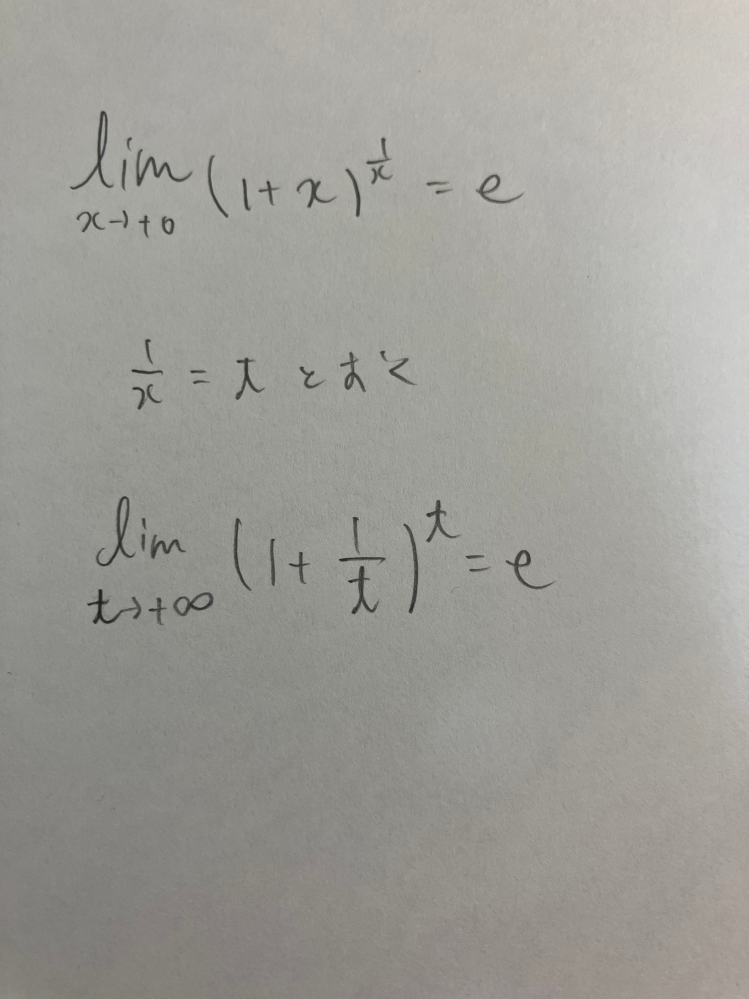 lim_{x→+0} (1+x)^{1/x} = e
1/x = t とおく
lim_{t→+∞} (1+1/t)^t = e